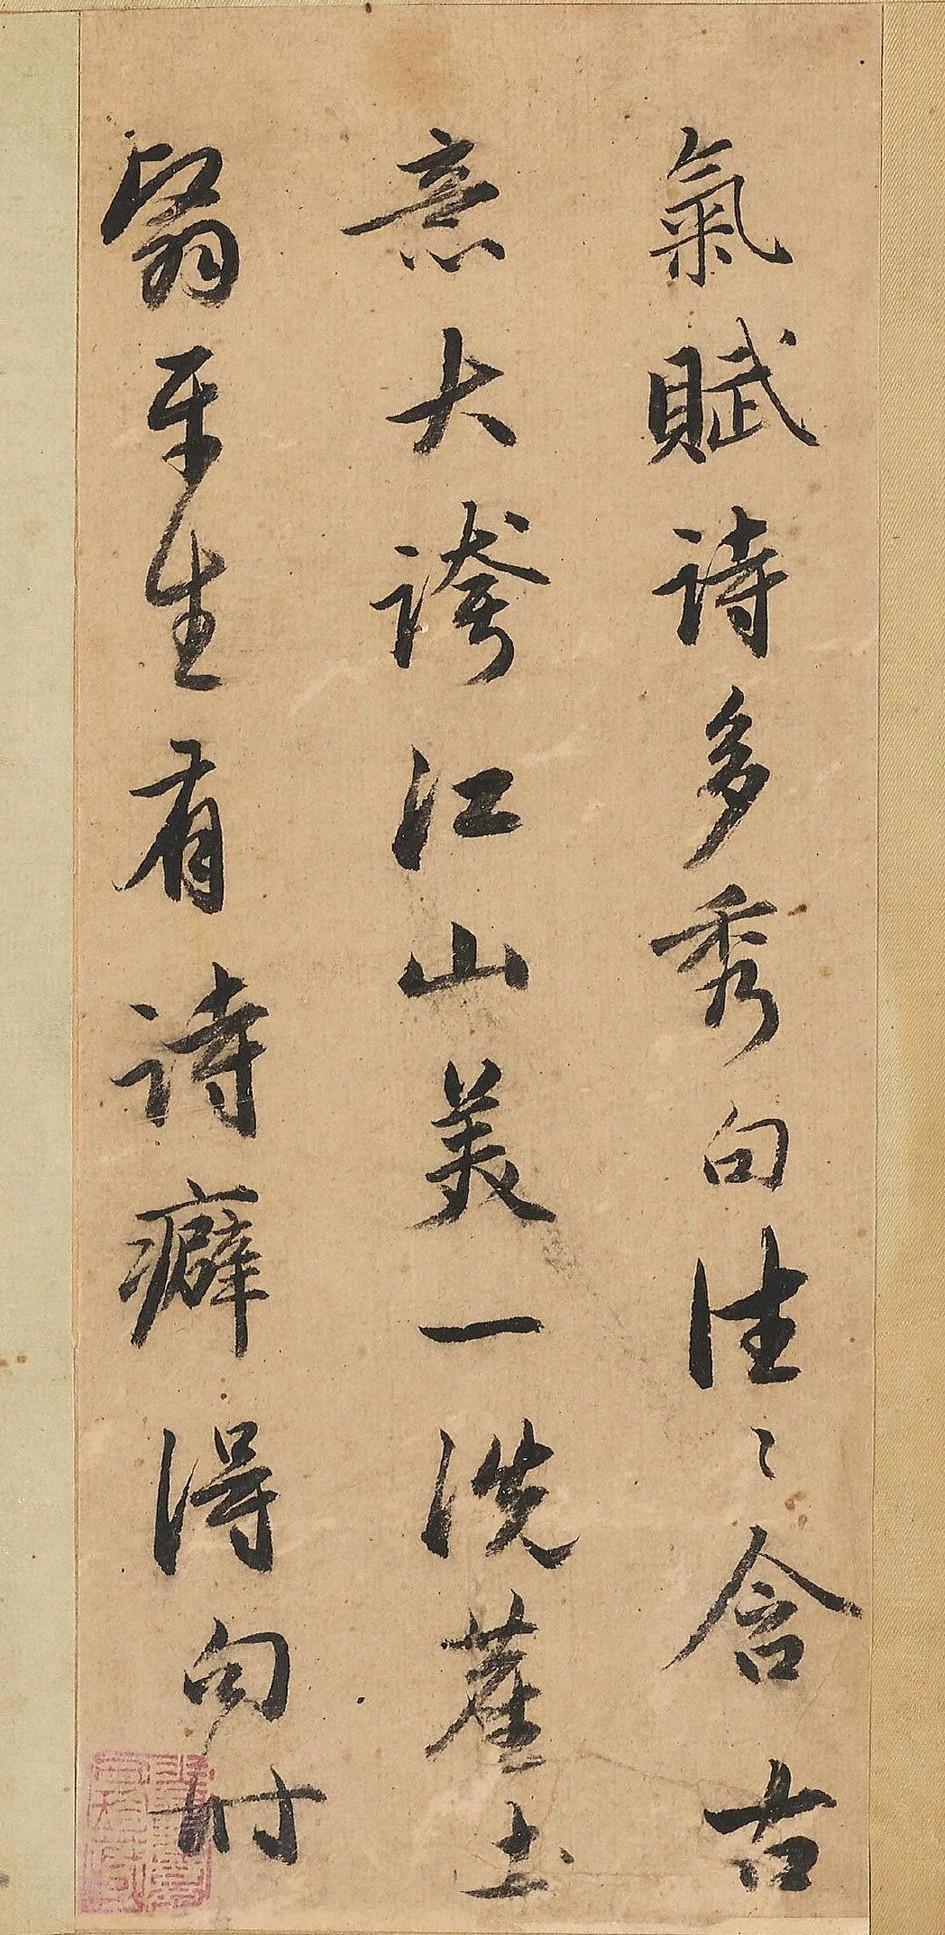 氣賦詩多秀句往〻含古
意大誇江山美一洗塵土
翳平生有詩癖得句